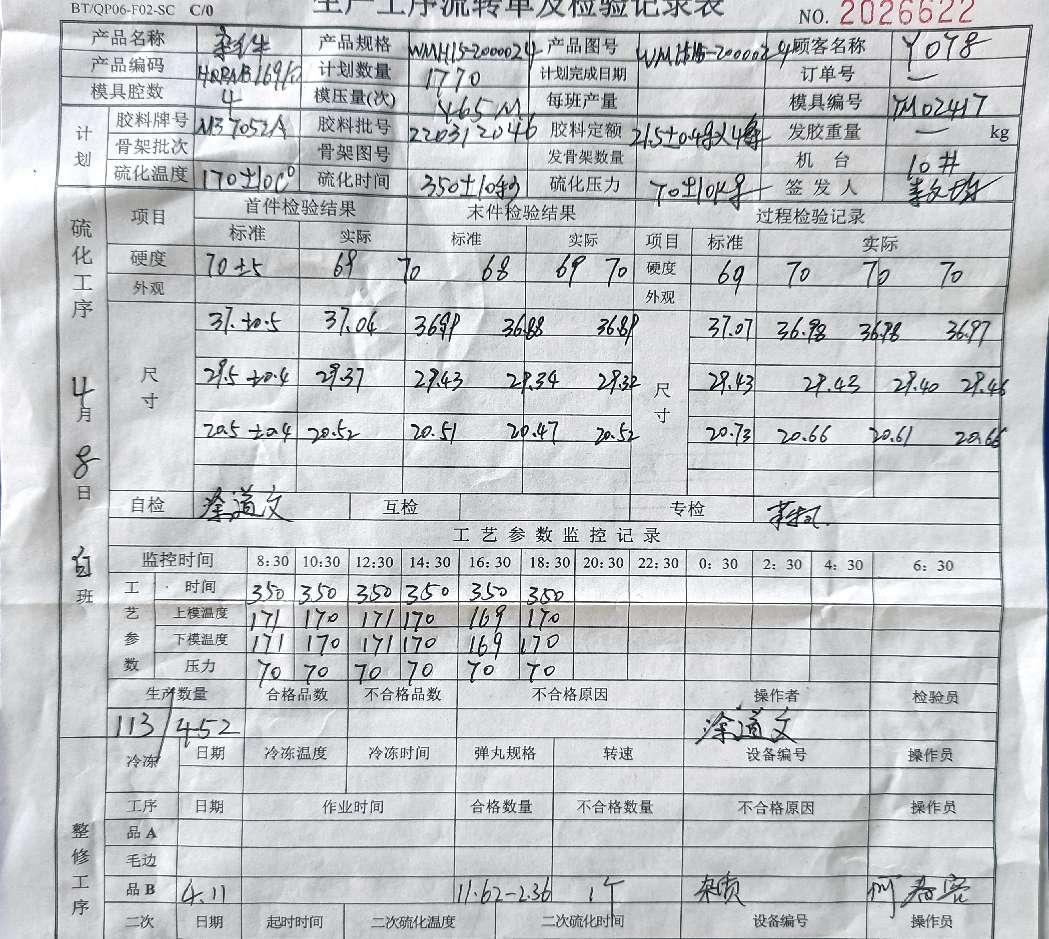 BT/QP06-F02-SC C/0
生产工序流转单及检验记录表 NO. 2026622
产品名称 杂件 产品规格 WMH15-2000024 产品图号 WM1515-2000024 顾客名称 Y078
产品编码 计划数量 1770 计划完成日期 订单号 一
模具腔数 4 模压量(次) 465M 每班产量 模具编号 YM02417
计划 胶料牌号 M37052A 胶料批号 220312046 胶料定额 21.5±0.4g×4 发胶重量 一 kg
骨架批次 骨架图号 发骨架数量 机 台 10#
硫化温度 170±10C° 硫化时间 350±10秒 硫化压力 70±10Kg 签 发 人
硫化工序 4月8日 白班
项目 首件检验结果 末件检验结果 过程检验记录
标准 实际 标准 实际 项目 标准 实际
硬度 70±5 69 70 68 69 70 硬度 69 70 70 70
外观 外观
尺寸 37.±0.5 37.04 36.91 36.88 36.89 尺寸 37.07 36.98 36.98 36.97
29.5±0.4 29.37 29.43 29.34 29.32 29.43 29.43 29.40 29.46
20.5±0.4 20.52 20.51 20.47 20.52 20.73 20.66 20.61 20.66
自检 涂道文 互检 专检
工艺参数监控记录
监控时间 8:30 10:30 12:30 14:30 16:30 18:30 20:30 22:30 0:30 2:30 4:30 6:30
工艺参数 时间 350 350 350 350 350 350
上模温度 171 170 171 170 169 170
下模温度 171 170 171 170 169 170
压力 70 70 70 70 70 70
生产数量 合格品数 不合格品数 不合格原因 操作者 检验员
113/452 涂道文
冷冻 日期 冷冻温度 冷冻时间 弹丸规格 转速 设备编号 操作员
整修工序
工序 日期 作业时间 合格数量 不合格数量 不合格原因 操作员
品A
毛边
品B 4.11 11.62-2.36 1个 杂质
二次 日期 起时时间 二次硫化温度 二次硫化时间 设备编号 操作员